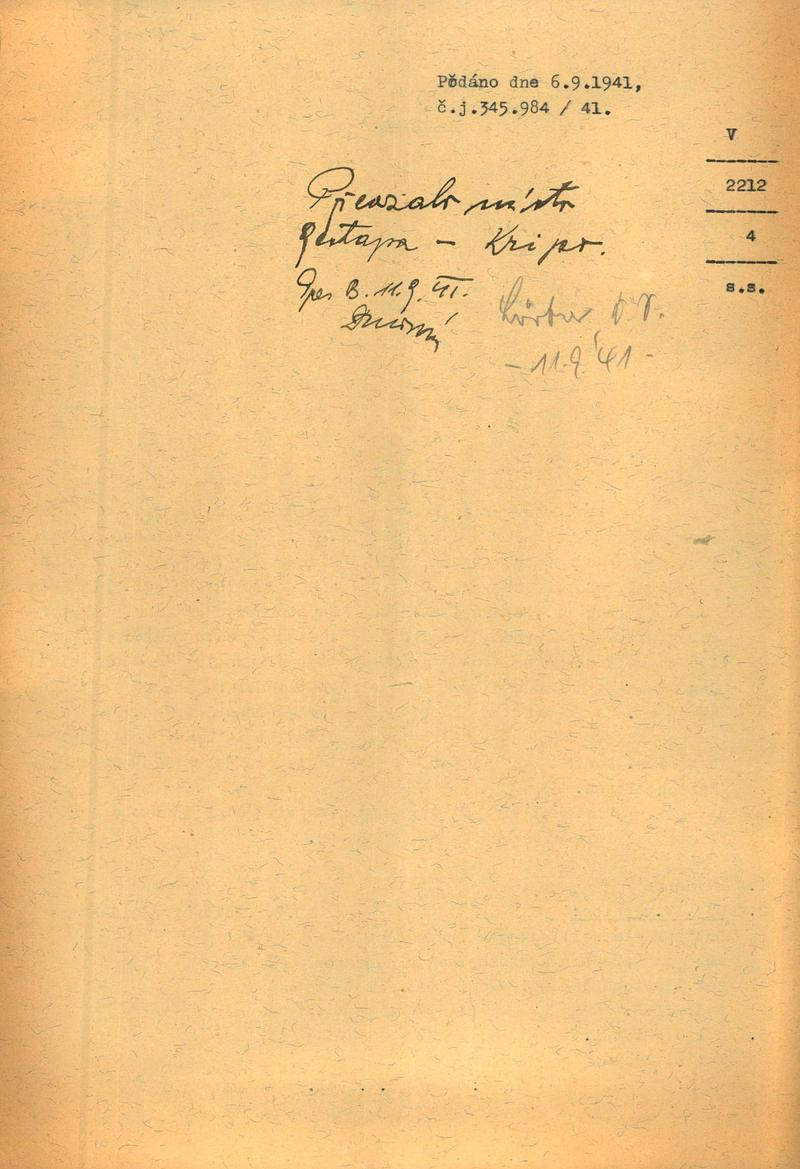 Podáno dne 6.9.1941,
č.j.345.984 / 41.
V
2212
4
s.s.
Převzalo místo
gestapa – Kripo.
11.9.41.
- 11.9.41 -